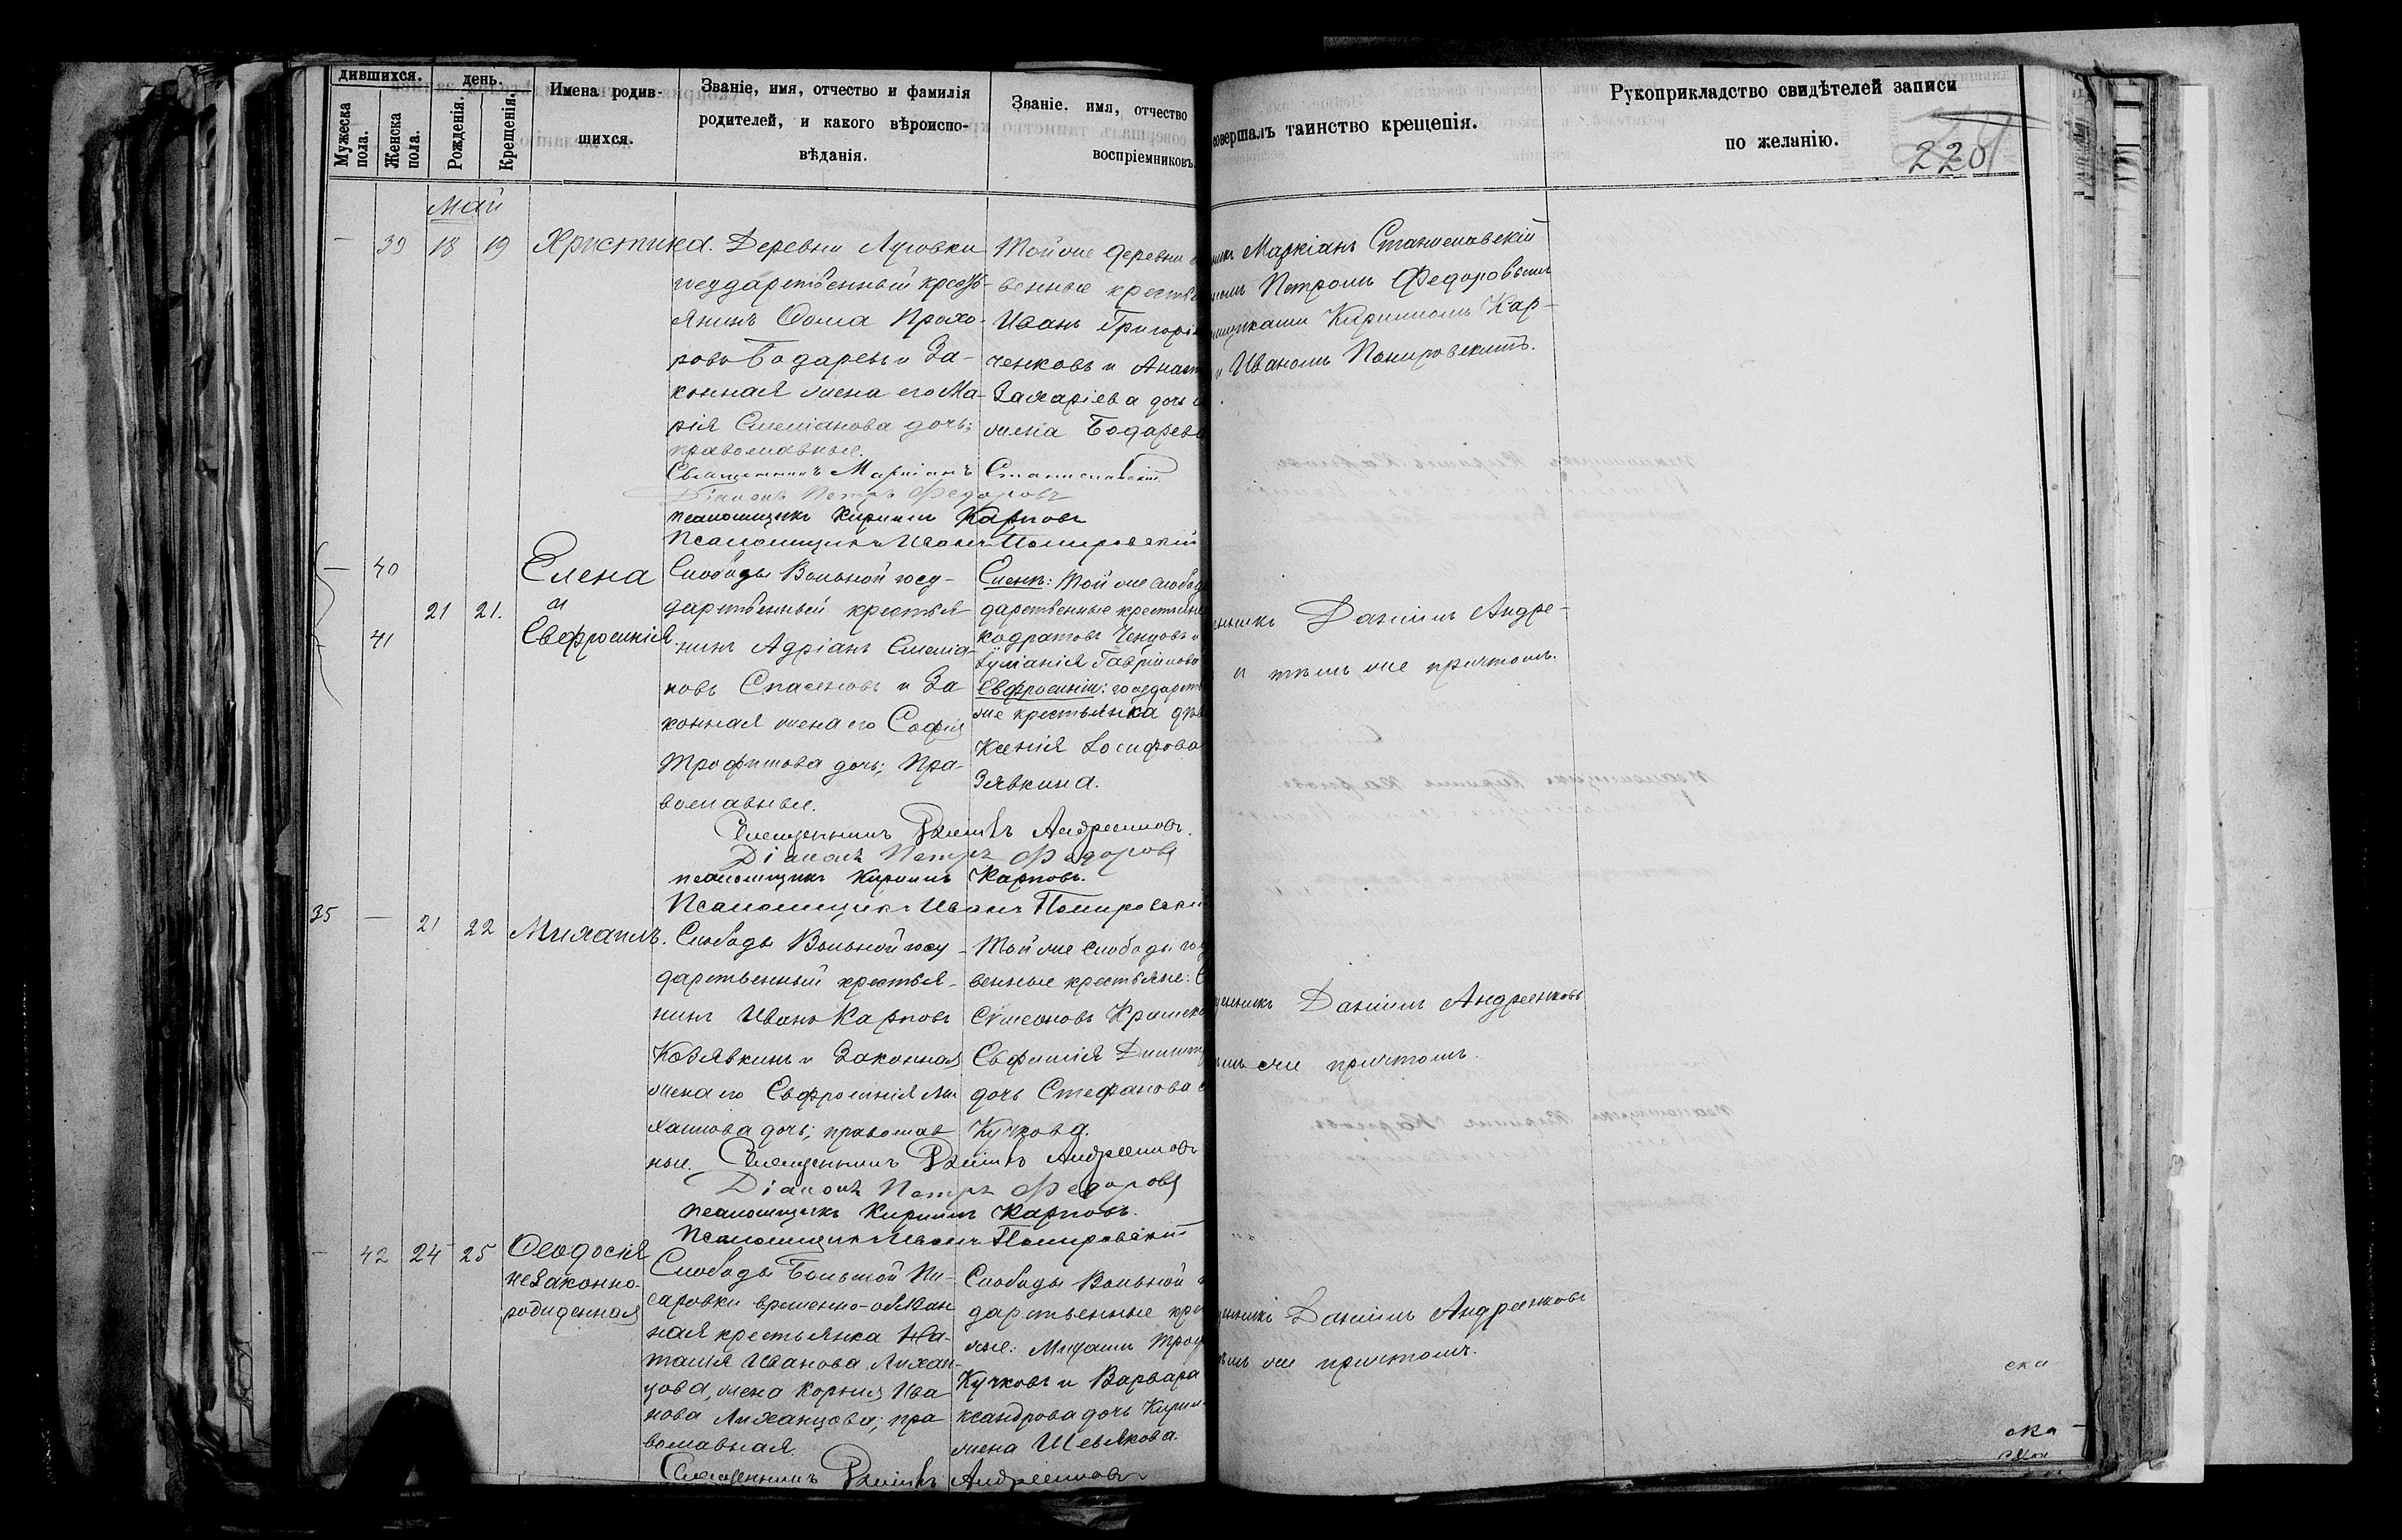 дившихся.
день.
Мужеска пола.
Женска пола.
Рожденія.
Крещенія.
Имена родив-
шихся.
Званіе, имя, отчество и фамилія
родителей, и какого вѣроиспо-
вѣданія.
Званіе. имя, отчество
воспріемниковъ.
совершалъ таинство крещенія.
Рукоприкладство свидѣтелей записи
по желанію.
220
Май
— 39 18 19 Христина.
Деревни Луговки
государственный кресть-
янинъ Ѳома Прохо-
ровъ Бодаревъ и за-
конная жена его Ма-
рія Симеіанова дочь;
православные.
Той же деревни
венные крестья
Иванъ Григорі
ченковъ и Анаст
Захаріева дочь
жена Бодарева
Маркіанъ Станиславскій
Петромъ Федоровымъ
Кирилломъ Кар-
и Иваномъ Помировскимъ.
Священникъ Маркіанъ Станиславскій
Діаконъ Петръ Федоровъ
псаломщикъ Кириллъ Карповъ
Псаломщикъ Иванъ Помировскій
— 40
41
21 21.
Елена
и
Евфросинія.
Слободы Вольной госу-
дарственный крестья-
нинъ Адріанъ Симеіа-
новъ Спасеновъ и за-
конная жена его Софія
Трофимова дочь; пра-
вославные.
Елены: Той же слобод
дарственные крестьяне
кодратовъ Ченцовъ и
Іуліанія Гавріилова
Евфросиніи: государств
же крестьянка дѣв
Ксенія Іосифова
Зявкина.
Даніилъ Андре-
и тѣмъ же причтомъ.
Священникъ Даніилъ Андреенковъ.
Діаконъ Петръ Федоровъ
псаломщикъ Кириллъ Карповъ.
Псаломщикъ Иванъ Помировскій
35 — 21 22 Михаилъ.
Слободы Вольной госу-
дарственный крестья-
нинъ Иванъ Карповъ
Козявкинъ и законная
жена его Евфросинія Ми
хаилова дочь; православ
ные.
Той же слободы го
венные крестьяне:
Сѵмеоновъ
Евфимія Димит
дочь Стефанова
Кучкова.
Даніилъ Андреенковъ
же причтомъ.
Священникъ Даніилъ Андреенковъ
Діаконъ Петръ Федоровъ
псаломщикъ Кириллъ Карповъ.
Псаломщикъ Иванъ Помировскій
— 42 24 25 Ѳеодосія
незаконно-
рожденная
Слободы Большой Пи-
саровки временно-обязан
ная крестьянка На-
талія Иванова Лихан-
цова, жена Корнія Ива
нова Лиханцова; пра
вославная.
Слободы Вольной
дарственные кре
яне: Михаилъ Троф
Кучковъ и Варвара
ксандрова дочь Кирил
жена Шевякова.
Даніилъ Андреенковъ
же причтомъ.
Священникъ Даніилъ Андреенковъ
ска
ска